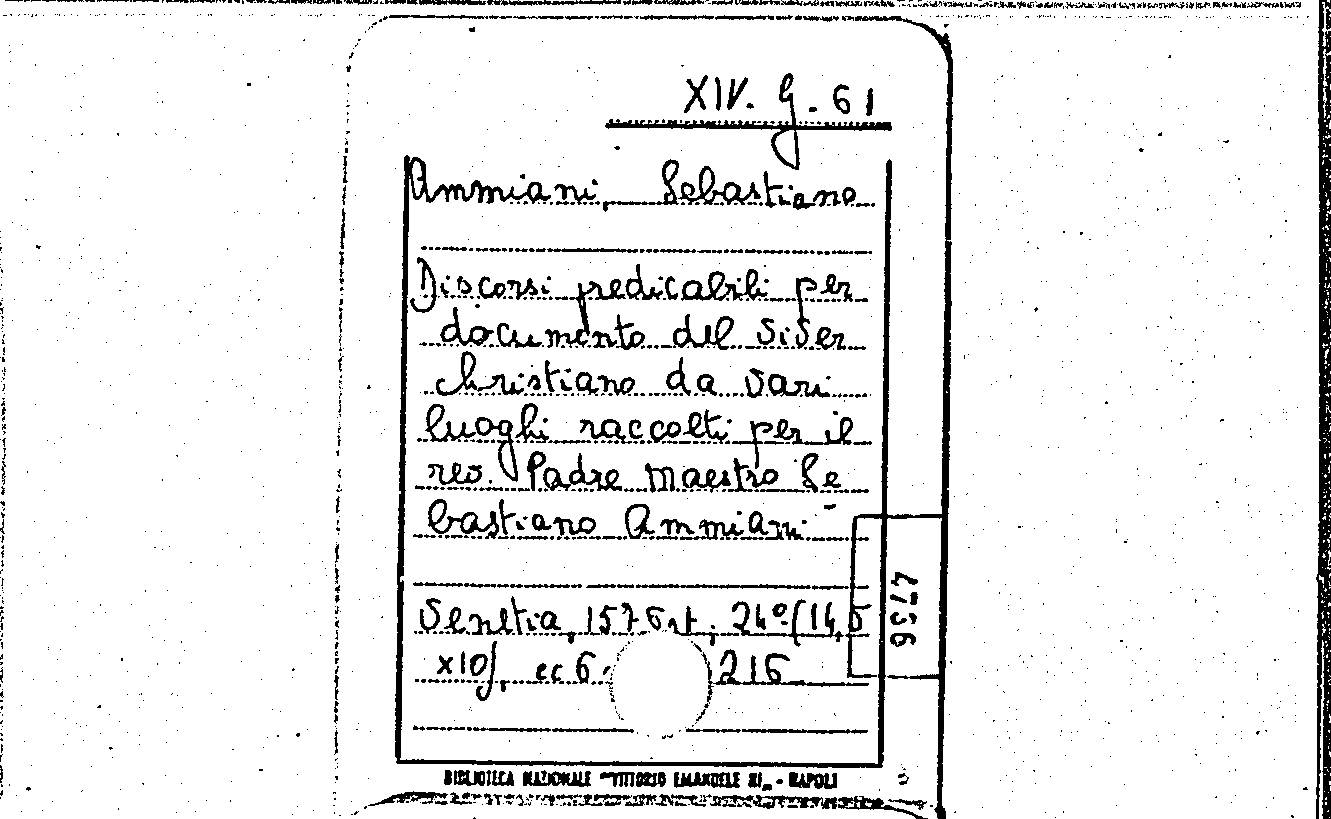 XIV. G. 61
Ammiani, Sebastiano
Discorsi predicabili per
documento del viver
christiano da vari
luoghi raccolti per il
rev. Padre Maestro Se
bastiano Ammiani
Venetia, 1576, 24º (14,5
x10), cc 6 216
4736
BIBLIOTECA NAZIONALE "VITTORIO EMANUELE III" - NAPOLI